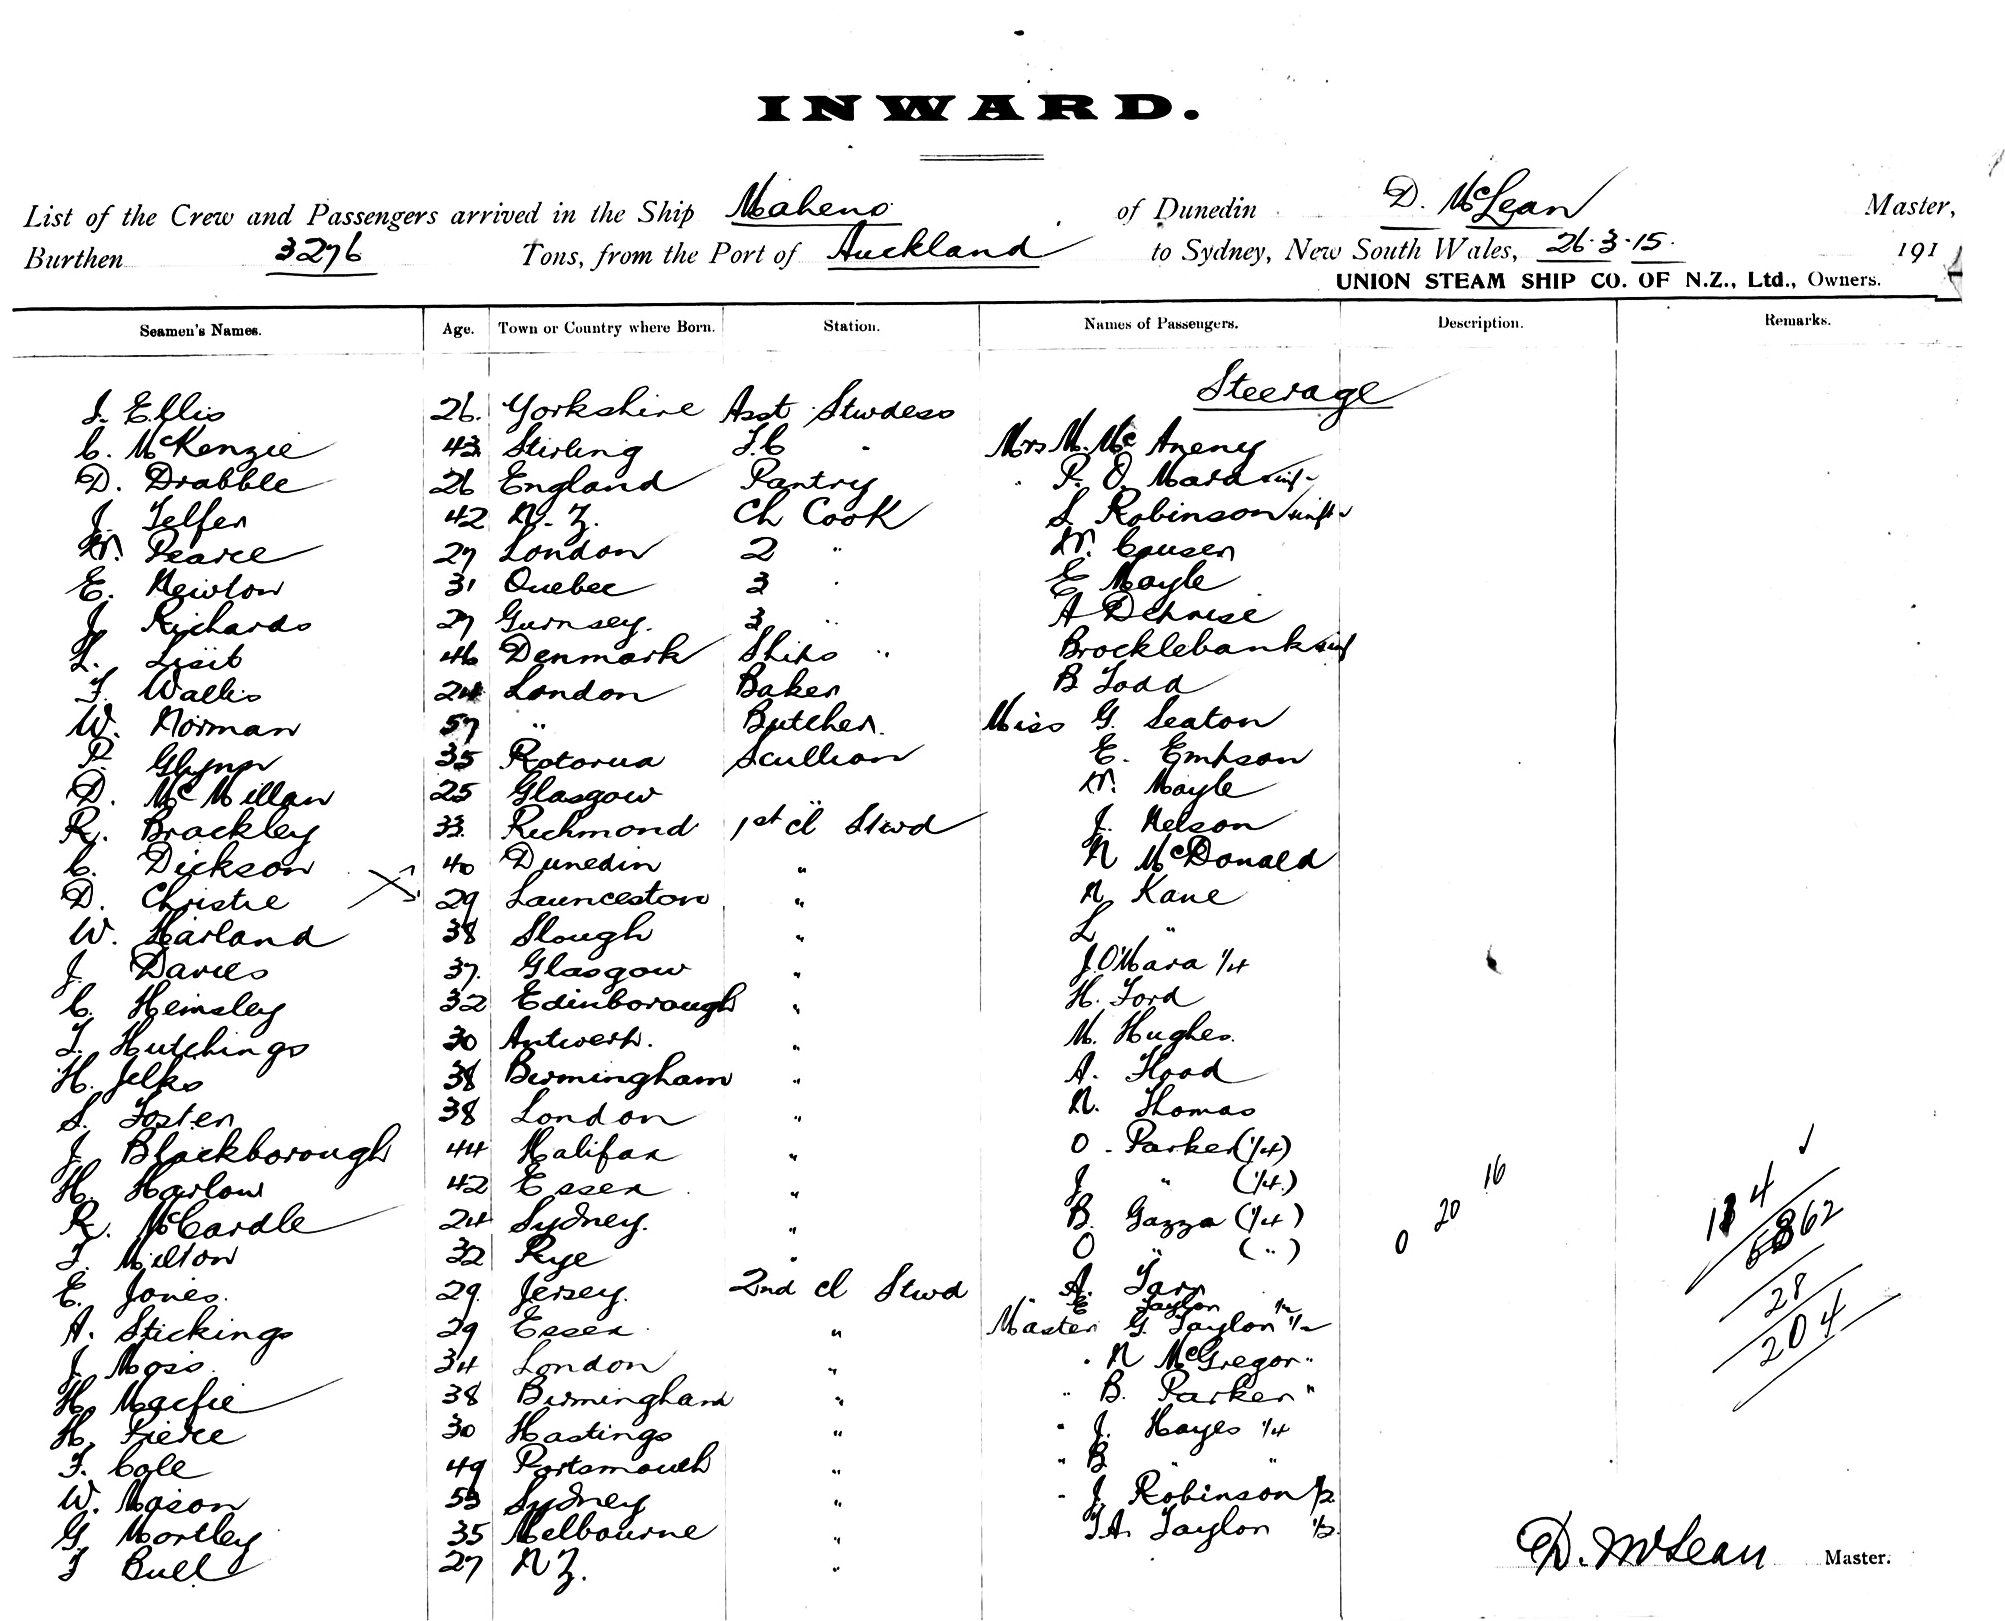 INWARD.
List of the Crew and Passengers arrived in the Ship Maheno of Dunedin D. McLean Master,
Burthen 3276 Tons, from the Port of Auckland to Sydney, New South Wales, 26.3.15. 191
UNION STEAM SHIP CO. OF N.Z., Ltd., Owners.
Seamen's Names. Age. Town or Country where Born. Station. Names of Passengers. Description. Remarks.
Steerage
S. Ellis 26. Yorkshire Asst Stwdess
C. McKenzie 43 Stirling T.C " Mrs M. Mc Aneny
D. Drabble 26 England Pantry " P. O. Mara inf
J. Telfer 42 N.Z. Ch Cook S Robinson inft
W. Pearce 27 London 2 " W. Causer
E. Newton 31 Quebec 3 " E Mayle
J. Richards 27 Gurnsey. 3 " A
L. 46 Denmark Ships " Brocklebank inf
F. Wallis 24 London Baker B Todd
W. Norman 57 " Butcher. Miss G. Seaton
P. Glynn 35 Rotorua Scullion E. Empson
D. McMillan 25 Glasgow " W. Mayle
R. Brackley 33. Richmond 1st cl Stwd J. Nelson
C. Dickson 40 Dunedin " N McDonald
D. Christie 29 Launceston " N Kane
W. Harland 38 Slough " L "
J. Davies 37. Glasgow " J. O'Mara 1/4
C. Hemsley 32 Edinborough " H. Ford
T. Hutchings 30 Antwerp. " M. Hughes.
H. Jelks 38 Birmingham " A. Hood
S. Foster 38 London " N. Thomas
J. Blackborough 44 Halifax " O. Parker (1/4)
H. Harlow 42 Essex " J " (1/4.)
R. McCardle 24 Sydney. " B. Gazza (1/4)
F. Milton 32 Rye " O " (")
E. Jones. 29. Jersey. 2nd cl Stwd A. Tarr
E Taylor 1/2
A. Stickings 29 Essex " Master G. Taylor 1/2
J. Moss. 34 London " " N McGregor "
H. Macfie 38 Birmingham " " B. Parker "
H. Pierce 30 Hastings " " J. Hayes 1/4
F. Cole 49 Portsmouth " " B " "
W. Mason 53 Sydney " " J. Robinson 1/2
G. Mortley 35 Melbourne " T.A. Taylor 1/2
F Bull 27 N Z. "
0 20 16
4
62
28
204
D. McLean Master.